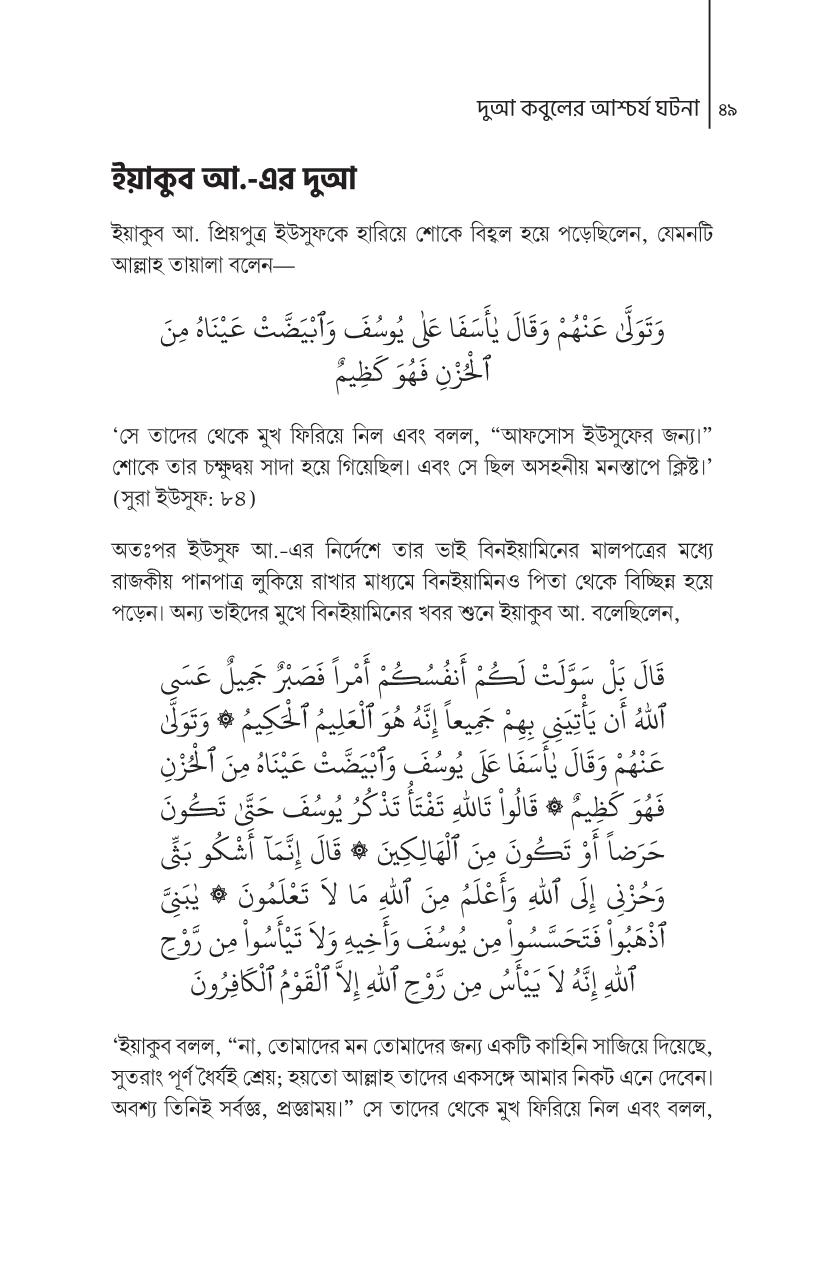 দুআ কবুলের আশ্চর্য ঘটনা ৪৯
ইয়াকুব আ.-এর দুআ
ইয়াকুব আ. প্রিয়পুত্র ইউসুফকে হারিয়ে শোকে বিহ্বল হয়ে পড়েছিলেন, যেমনটি
আল্লাহ তায়ালা বলেন—
وَتَوَلَّىٰ عَنْهُمْ وَقَالَ يَٰأَسَفَا عَلَىٰ يُوسُفَ وَٱبْيَضَّتْ عَيْنَاهُ مِنَ
ٱلْحُزْنِ فَهُوَ كَظِيمٌ
‘সে তাদের থেকে মুখ ফিরিয়ে নিল এবং বলল, “আফসোস ইউসুফের জন্য।”
শোকে তার চক্ষুদ্বয় সাদা হয়ে গিয়েছিল। এবং সে ছিল অসহনীয় মনস্তাপে ক্লিষ্ট।’
(সুরা ইউসুফ: ৮৪)
অতঃপর ইউসুফ আ.-এর নির্দেশে তার ভাই বিনইয়ামিনের মালপত্রের মধ্যে
রাজকীয় পানপাত্র লুকিয়ে রাখার মাধ্যমে বিনইয়ামিনও পিতা থেকে বিচ্ছিন্ন হয়ে
পড়েন। অন্য ভাইদের মুখে বিনইয়ামিনের খবর শুনে ইয়াকুব আ. বলেছিলেন,
قَالَ بَلْ سَوَّلَتْ لَكُمْ أَنفُسُكُمْ أَمْراً فَصَبْرٌ جَمِيلٌ عَسَى
ٱللهُ أَن يَأْتِيَنِي بِهِمْ جَمِيعاً إِنَّهُ هُوَ ٱلْعَلِيمُ ٱلْحَكِيمُ ۞ وَتَوَلَّىٰ
عَنْهُمْ وَقَالَ يَٰأَسَفَا عَلَى يُوسُفَ وَٱبْيَضَّتْ عَيْنَاهُ مِنَ ٱلْحُزْنِ
فَهُوَ كَظِيمٌ ۞ قَالُواْ تَاللهِ تَفْتَأُ تَذْكُرُ يُوسُفَ حَتَّىٰ تَكُونَ
حَرَضاً أَوْ تَكُونَ مِنَ ٱلْهَالِكِينَ ۞ قَالَ إِنَّمَآ أَشْكُو بَثِّي
وَحُزْنِي إِلَى ٱللهِ وَأَعْلَمُ مِنَ ٱللهِ مَا لاَ تَعْلَمُونَ ۞ يَٰبَنِيَّ
ٱذْهَبُواْ فَتَحَسَّسُواْ مِن يُوسُفَ وَأَخِيهِ وَلاَ تَيْأَسُواْ مِن رَّوْحِ
ٱللهِ إِنَّهُ لاَ يَيْأَسُ مِن رَّوْحِ ٱللهِ إِلاَّ ٱلْقَوْمُ ٱلْكَافِرُونَ
‘ইয়াকুব বলল, “না, তোমাদের মন তোমাদের জন্য একটি কাহিনি সাজিয়ে দিয়েছে,
সুতরাং পূর্ণ ধৈর্যই শ্রেয়; হয়তো আল্লাহ তাদের একসঙ্গে আমার নিকট এনে দেবেন।
অবশ্য তিনিই সর্বজ্ঞ, প্রজ্ঞাময়।” সে তাদের থেকে মুখ ফিরিয়ে নিল এবং বলল,